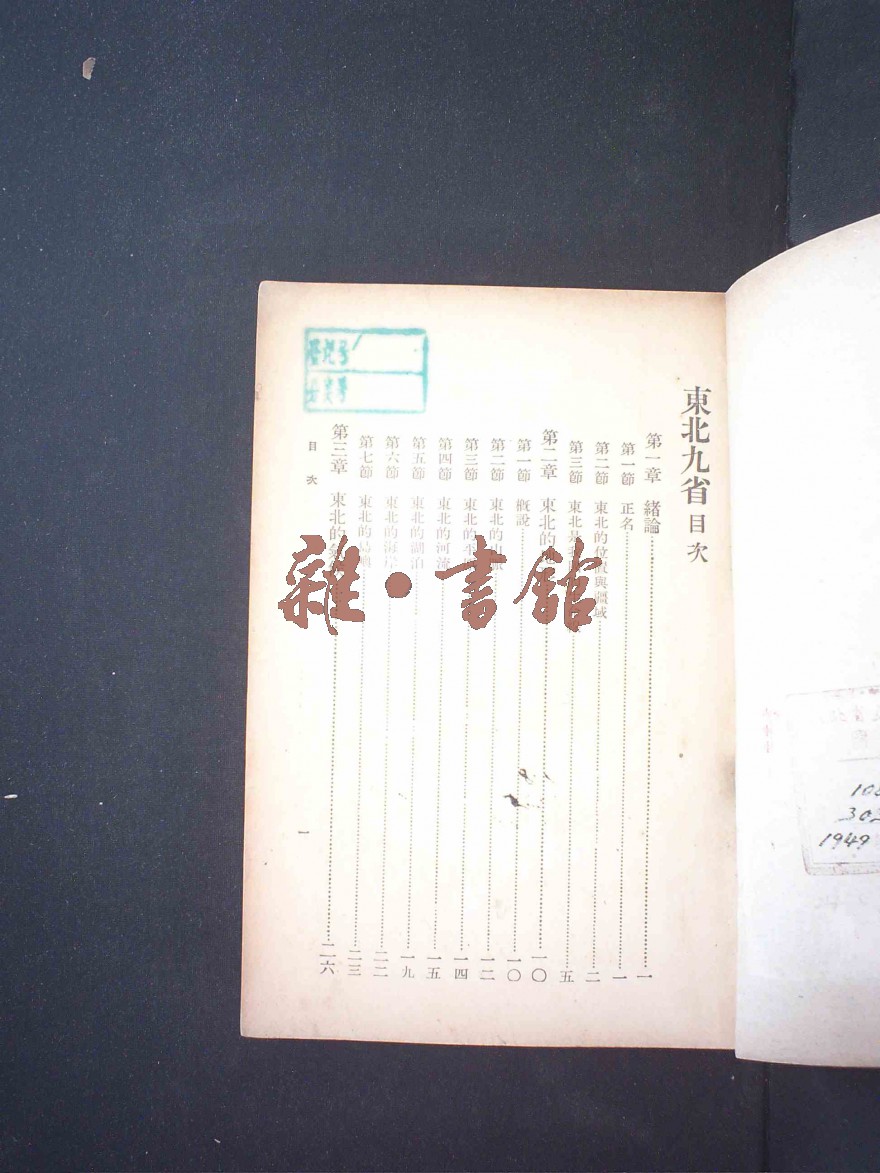 東北九省 目次
第一章 緒論 一
第一節 正名 一
第二節 東北的位置與疆域 二
第三節 東北是 五
第二章 東北的 一〇
第一節 概說 一〇
第二節 東北的 一二
第三節 東北的 一四
第四節 東北的河流 一五
第五節 東北的湖泊 一九
第六節 東北的海岸 二二
第七節 東北的島嶼 二三
第三章 東北的 二六
目次
一
雜·書館
登记号
1949